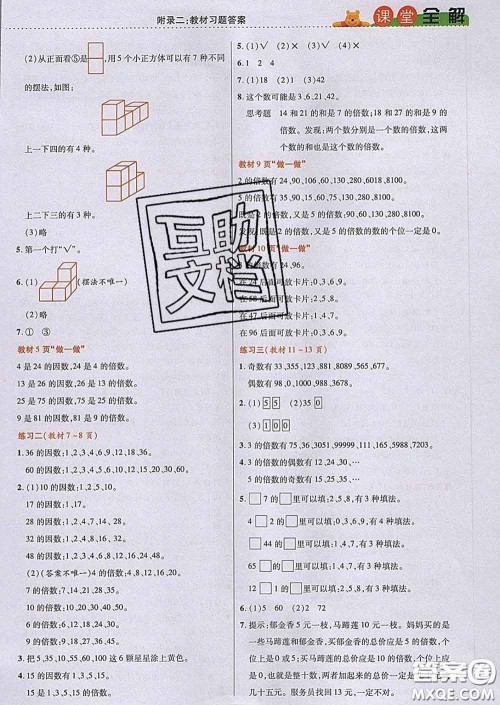 附录二:教材习题答案
课堂全解
(2)从正面看⑤是 ,用5个小正方体可以有7种不同
的摆法。
上一下四的有4种。
上二下三的有3种。
(3)略
5. 第一个打“√”。
6. (1) (摆法不唯一)
(2)略
7. ① ③
教材5页“做一做”
4是24的因数,24是4的倍数。
13是26的因数,26是13的倍数。
25是75的因数,75是25的倍数。
9是81的因数,81是9的倍数。
练习二(教材7~8页)
1. 36的因数:1,2,3,4,6,9,12,18,36。
60的因数:1,2,3,4,5,6,10,12,15,20,30,60。
2. (1)10的因数:1,2,5,10。
17的因数:1,17。
28的因数:1,2,4,7,14,28。
32的因数:1,2,4,8,16,32。
48的因数:1,2,3,4,6,8,12,16,24,48。
(2)(答案不唯一)4的倍数:4,8,12,16,20。
7的倍数:7,14,21,28,35。
10的倍数:10,20,30,40,50。
6的倍数:6,12,18,24,30。
9的倍数:9,18,27,36,45。
3. 把5,35,10,55,60,100这6颗星星涂上黄色。
4. (1)15的因数有1,3,5,15。
15是1,3,5,15的倍数。
5. (1)√ (2)× (3)√ (4)×
6. 1 2 4
7. (1)18 (2)1 (3)42
8. 这个数可能是3,6,21,42。
思考题 14和21的和是7的倍数;18和27的和是9的
倍数。发现:两个数分别是一个数的倍数,这两
个数的和也是这个数的倍数。
教材9页“做一做”
2的倍数有24,90,106,60,130,280,6018,8100。
5的倍数有35,90,15,60,75,130,280,8100。
既是2的倍数,又是5的倍数:90,60,130,280,8100。
发现:既是2的倍数,又是5的倍数的数的个位一定是0。
教材10页“做一做”
3的倍数有24,96。
在24后面可放卡片:0,3,6,9。
在58后面可放卡片:2,5,8。
在46后面可放卡片:2,5,8。
在96后面可放卡片:0,3,6,9。
练习三(教材11~13页)
1. 奇数有33,355,123,881,8089,565,677。
偶数有98,0,1000,988,3678,5656。
2. (1)55 (2)350
3. 3的倍数有75,36,3051,99999,111,165,5988,7203。
4. 3的倍数的偶数有12。
3的倍数的奇数有15。
5. □7的□里可以填:2,5,8,有3种填法。
4□2的□里可以填:0,3,6,9,有4种填法。
□44的□里可以填:1,4,7,有3种填法。
65□的□里可以填:1,4,7,有3种填法。
12□1的□里可以填:2,5,8,有3种填法。
6. (1)5 60 (2)2 72
7. 提示:郁金香5元一枝,马蹄莲10元一枝。妈妈买的是
一些马蹄莲和郁金香。买郁金香的总价应是5的倍数,个
位上是0或5;买马蹄莲的总价应是10的倍数,个位上是
0,也就是整十数,两种花的总价加起来应是几十元或
几十五元。服务员找回13元,一定不对。
互助文档
答案圈
MXQE.COM